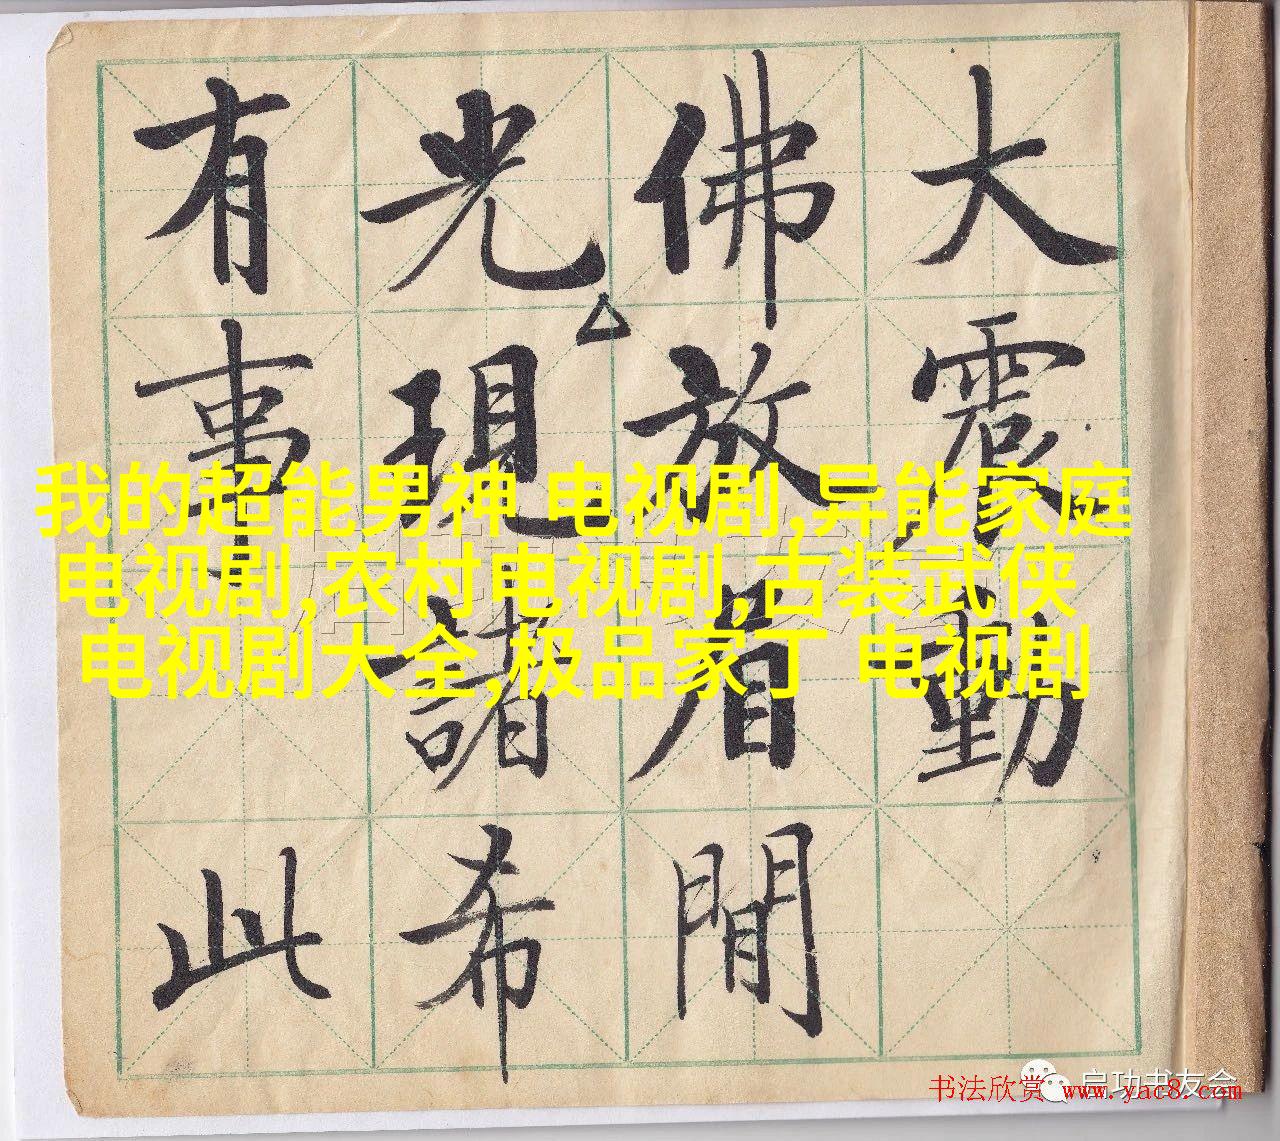 大震動
佛放眉間
光現諸希
有事 此
我的超能男神 电视剧,异能家庭
电视剧,农村电视剧,古装武侠
电视剧大全,极品家丁 电视剧
启功书友会
书法欣赏 www.yac8.com